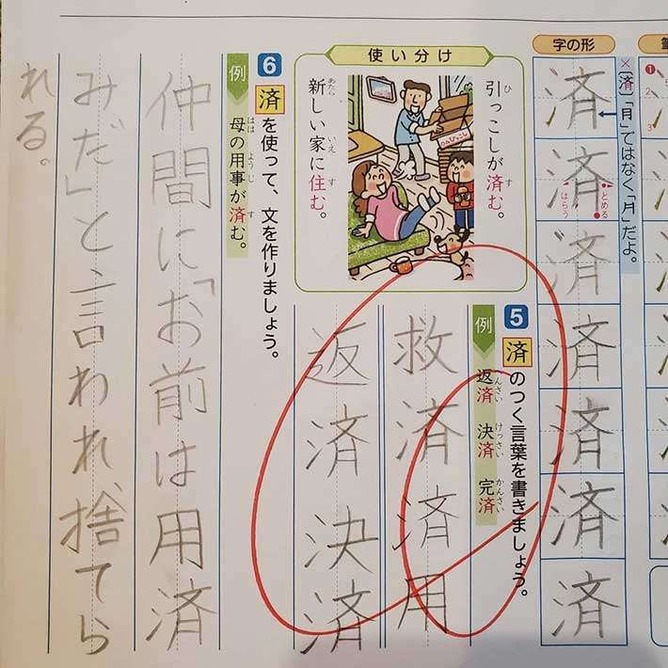 字の形
×
済
「⺝」ではなく「月」だよ。
済
とめる
はらう
済
済
済
済
済
済
使い分け
引っこしが済む。
ひ
す
新しい家に住む。
あたら
いえ
す
5
済のつく言葉を書きましょう。
例
返済 決済 完済
んさい
けっさい
かんさい
救済 済用
返済 決済
6
済を使って、文を作りましょう。
例
母の用事が済む。
はは
ようじ
す
仲間に「お前は用済
みだ」と言われ、捨てら
れる。